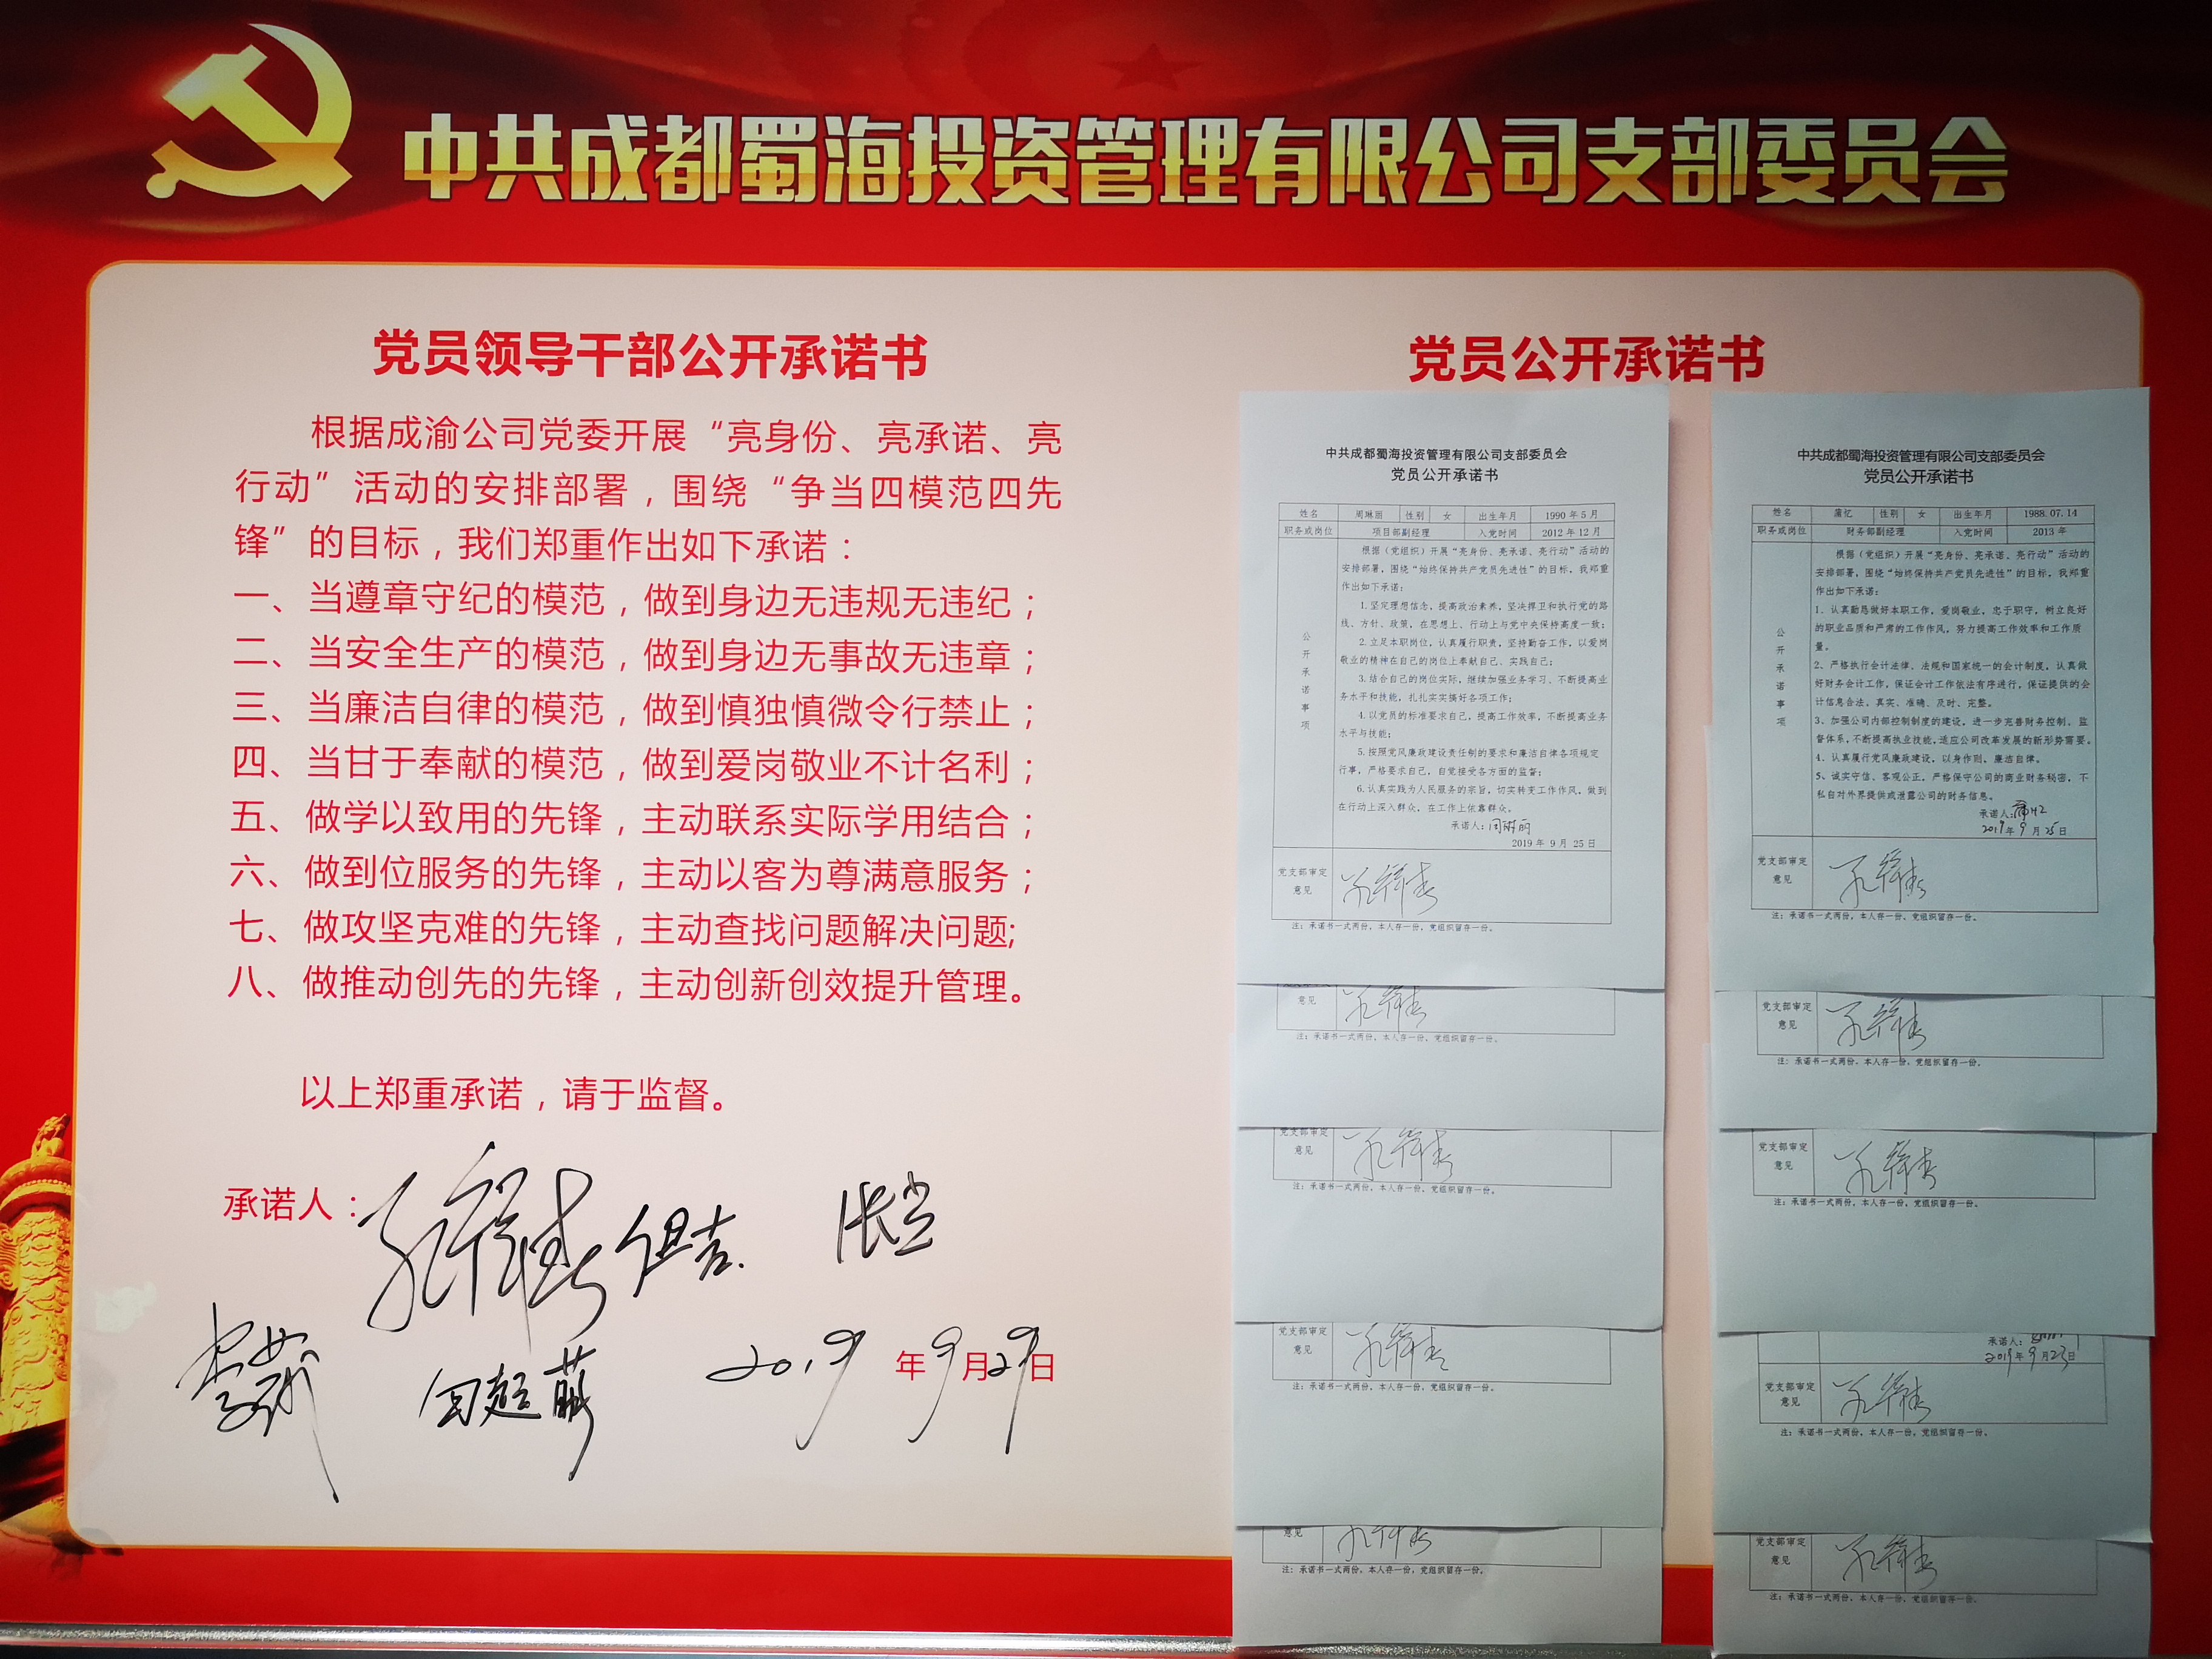 中共成都蜀海投资管理有限公司支部委员会
党员领导干部公开承诺书
根据成渝公司党委开展“亮身份、亮承诺、亮
行动”活动的安排部署，围绕“争当四模范四先
锋”的目标，我们郑重作出如下承诺：
一、当遵章守纪的模范，做到身边无违规无违纪；
二、当安全生产的模范，做到身边无事故无违章；
三、当廉洁自律的模范，做到慎独慎微令行禁止；
四、当甘于奉献的模范，做到爱岗敬业不计名利；
五、做学以致用的先锋，主动联系实际学用结合；
六、做到位服务的先锋，主动以客为尊满意服务；
七、做攻坚克难的先锋，主动查找问题解决问题;
八、做推动创先的先锋，主动创新创效提升管理。
以上郑重承诺，请于监督。
承诺人：
2019年9月29日
党员公开承诺书
中共成都蜀海投资管理有限公司支部委员会
党员公开承诺书
姓名 周琳丽 性别 女 出生年月 1990年5月
职务或岗位 项目部副经理 入党时间 2012年12月
公开承诺事项
根据（党组织）开展“亮身份、亮承诺、亮行动”活动的
安排部署，围绕“始终保持共产党员先进性”的目标，我郑重
作出如下承诺：
1.坚定理想信念，提高政治素养，坚决捍卫和执行党的路
线、方针、政策，在思想上、行动上与党中央保持高度一致；
2.立足本职岗位，认真履行职责，坚持勤奋工作，以爱岗
敬业的精神在自己的岗位上奉献自己、实践自己；
3.结合自己的岗位实际，继续加强业务学习、不断提高业
务水平和技能，扎扎实实搞好各项工作；
4.以党员的标准要求自己，提高工作效率，不断提高业务
水平与技能；
5.按照党风廉政建设责任制的要求和廉洁自律各项规定
行事，严格要求自己，自觉接受各方面的监督；
6.认真实践为人民服务的宗旨，切实转变工作作风，做到
在行动上深入群众，在工作上依靠群众。
承诺人：周琳丽
2019年9月25日
党支部审定
意见
注：承诺书一式两份，本人存一份、党组织留存一份。
意见
注：承诺书一式两份，本人存一份、党组织留存一份。
党支部审定
意见
注：承诺书一式两份，本人存一份、党组织留存一份。
党支部审定
意见
注：承诺书一式两份，本人存一份、党组织留存一份。
意见
注：承诺书一式两份，本人存一份，党组织留存一份。
中共成都蜀海投资管理有限公司支部委员会
党员公开承诺书
姓名 蒲忆 性别 女 出生年月 1988.07.14
职务或岗位 财务部副经理 入党时间 2013年
公开承诺事项
根据（党组织）开展“亮身份、亮承诺、亮行动”活动的
安排部署，围绕“始终保持共产党员先进性”的目标，我郑重
作出如下承诺：
1、认真勤恳做好本职工作，爱岗敬业，忠于职守，树立良好
的职业品质和严肃的工作作风，努力提高工作效率和工作质
量。
2、严格执行会计法律、法规和国家统一的会计制度，认真做
好财务会计工作，保证会计工作依法有序进行，保证提供的会
计信息合法、真实、准确、及时、完整。
3、加强公司内部控制制度的建设，进一步完善财务控制、监
督体系，不断提高执业技能，适应公司改革发展的新形势需要。
4、认真履行党风廉政建设，以身作则，廉洁自律。
5、诚实守信、客观公正，严格保守公司的商业财务秘密，不
私自对外界提供或泄露公司的财务信息。
承诺人：蒲忆
2019年9月25日
党支部审定
意见
注：承诺书一式两份，本人存一份、党组织留存一份。
党支部审定
意见
注：承诺书一式两份，本人存一份、党组织留存一份。
党支部审定
意见
注：承诺书一式两份，本人存一份、党组织留存一份。
承诺人：
2019年9月23日
党支部审定
意见
注：承诺书一式两份，本人存一份，党组织留存一份。
党支部审定
意见
注：承诺书一式两份，本人存一份、党组织留存一份。